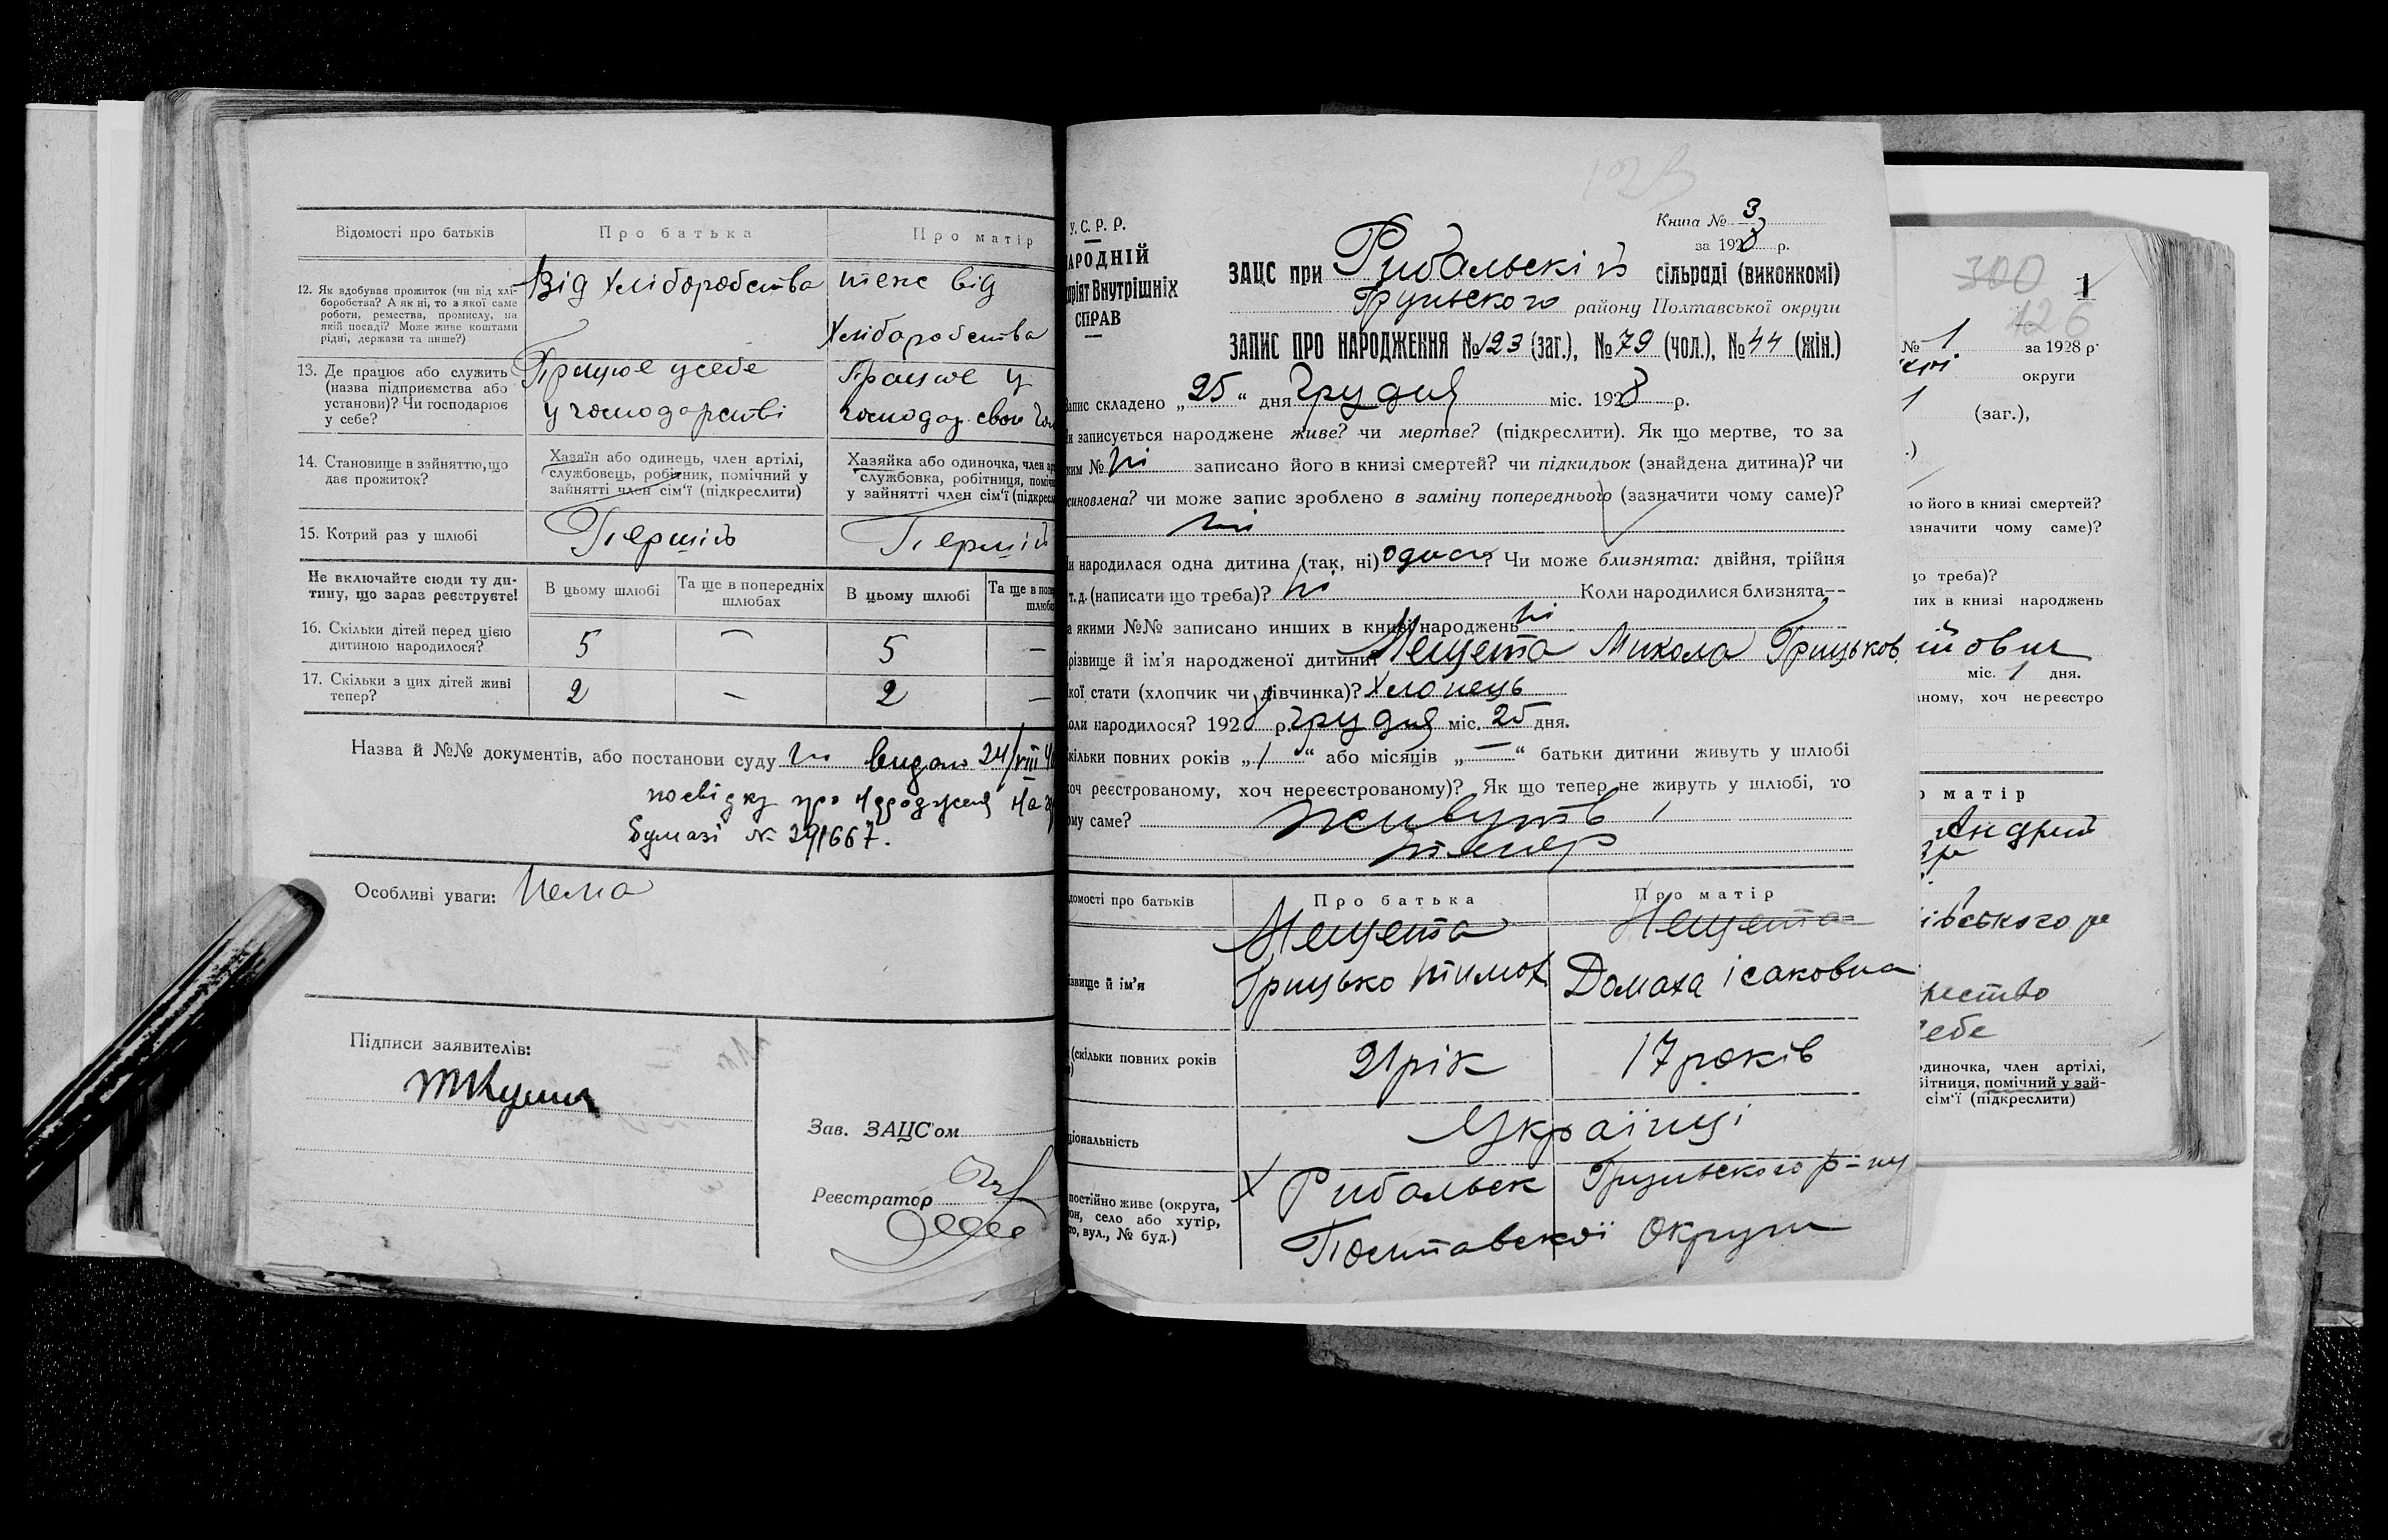 Відомості про батьків
Про батька
Про матір
12. Як здобуває прожиток (чи від хлі-
боробства? А як ні, то з якої саме
роботи, ремества, промислу, на
якій посаді? Може живе коштами
рідні, держави та инше?)
Від Хліборобства
теж від
Хліборобства
13. Де працює або служить
(назва підприємства або
установи)? Чи господарює
у себе?
Працює у себе
у господарстві
Працює у
господар. свою
14. Становище в зайняттю, що
дає прожиток?
Хазяїн або одинець, член артілі,
службовець, робітник, помічний у
зайнятті член сім'ї (підкреслити)
Хазяйка або одиночка, член ар
службовка, робітниця, поміч
у зайнятті член сім'ї (підкресл
15. Котрий раз у шлюбі
Першій
Першій
Не включайте сюди ту ди-
тину, що зараз реєструєте!
В цьому шлюбі
Та ще в попередніх
шлюбах
В цьому шлюбі
Та ще в поп
шлюба
16. Скільки дітей перед цією
дитиною народилося?
5 — 5 —
17. Скільки з цих дітей живі
тепер?
2 — 2 —
Назва й №№ документів, або постанови суду ні видано 24/VIII
посвідку про народження на
бумазі № 291667.
Особливі уваги: Нема
Підписи заявителів:
Зав. ЗАЦС'ом
Реєстратор
У.С.Р.Р.
АРОДНІЙ
ріят Внутрішніх
СПРАВ
Книга № 3
за 1928 р.
ЗАЦС при Рибальскій сільраді (виконкомі)
Грунського району Полтавської округи
ЗАПИС ПРО НАРОДЖЕННЯ № 123 (заг.), № 79 (чол.), № 44 (жін.)
Запис складено „25" дня Грудня міс. 1928 р.
и записується народжене живе? чи мертве? (підкреслити). Як що мертве, то за
ким № ні записано його в книзі смертей? чи підкидьок (знайдена дитина)? чи
синовлена? чи може запис зроблено в заміну попереднього (зазначити чому саме)?
ні
и народилася одна дитина (так, ні) одна? Чи може близнята: двійня, трійня
т.д. (написати що треба)? ні Коли народилися близнята--
а якими №№ записано инших в книзі народжень ні
різвище й ім'я народженої дитини? Нещета Микола Грицьковійович
кої стати (хлопчик чи дівчинка)? Хлопець
оли народилося? 1928 р. Грудня міс. 25 дня.
кільки повних років „1" або місяців „—" батьки дитини живуть у шлюбі
хоч реєстрованому, хоч нереєстрованому)? Як що тепер не живуть у шлюбі, то
ому саме? Живуть
тепер
домості про батьків
Про батька
Про матір
ізвище й ім'я
Нещета
Грицько Тимох
Нещета
Домаха Ісаковна
(скільки повних років
21 рік
17 років
ціональність
Українці
постійно живе (округа,
он, село або хутір,
то, вул., № буд.)
Рибальск Грунського р-ну
Полтавської Округи
300
1
126
№ 1 за 1928 р.
округи
1 (заг.),
.)
но його в книзі смертей?
азначити чому саме)?
що треба)?
ших в книзі народжень
міс. 1 дня.
ному, хоч нереєстро
о матір
Андрій
івського р
ество
себе
одиночка, член артілі,
бітниця, помічний у зай-
сім'ї (підкреслити)